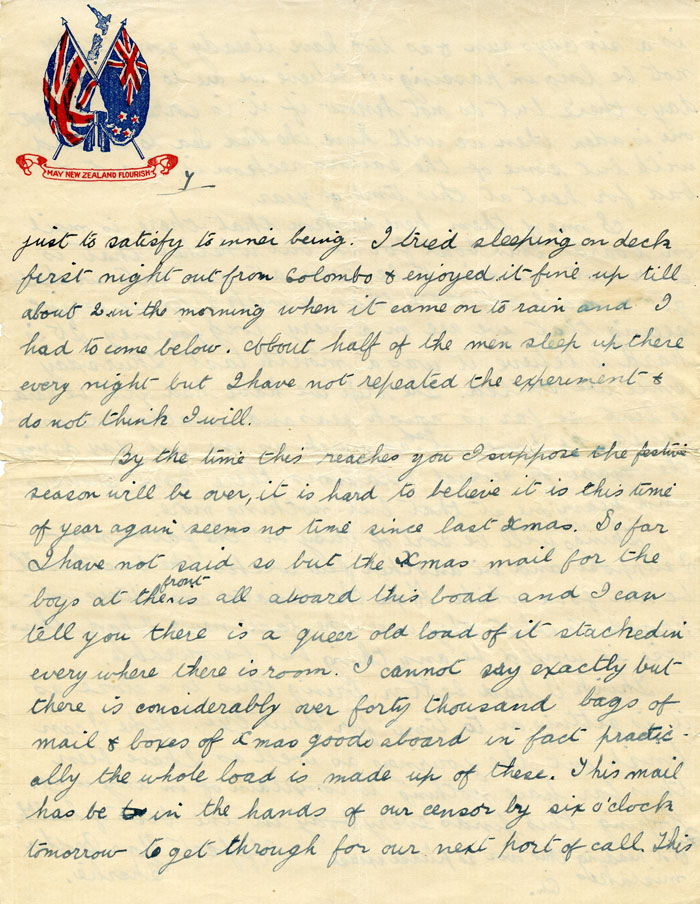 MAY NEW ZEALAND FLOURISH
y
just to satisfy to inner being. I tried sleeping on deck
first night out from Colombo & enjoyed it fine up till
about 2 in the morning when it came on to rain and I
had to come below. About half of the men sleep up there
every night but I have not repeated the experiment &
do not think I will.
By the time this reaches you I suppose the festive
season will be over, it is hard to believe it is this time
of year again seems no time since last Xmas. So far
I have not said so but the Xmas mail for the
boys at the front is all aboard this boad and I can
tell you there is a queer old load of it stacked in
every where there is room. I cannot say exactly but
there is considerably over forty thousand bags of
mail & boxes of Xmas goods aboard in fact practic-
ally the whole load is made up of these. This mail
has be to in the hands of our censor by six o'clock
tomorrow to get through for our next port of call. This